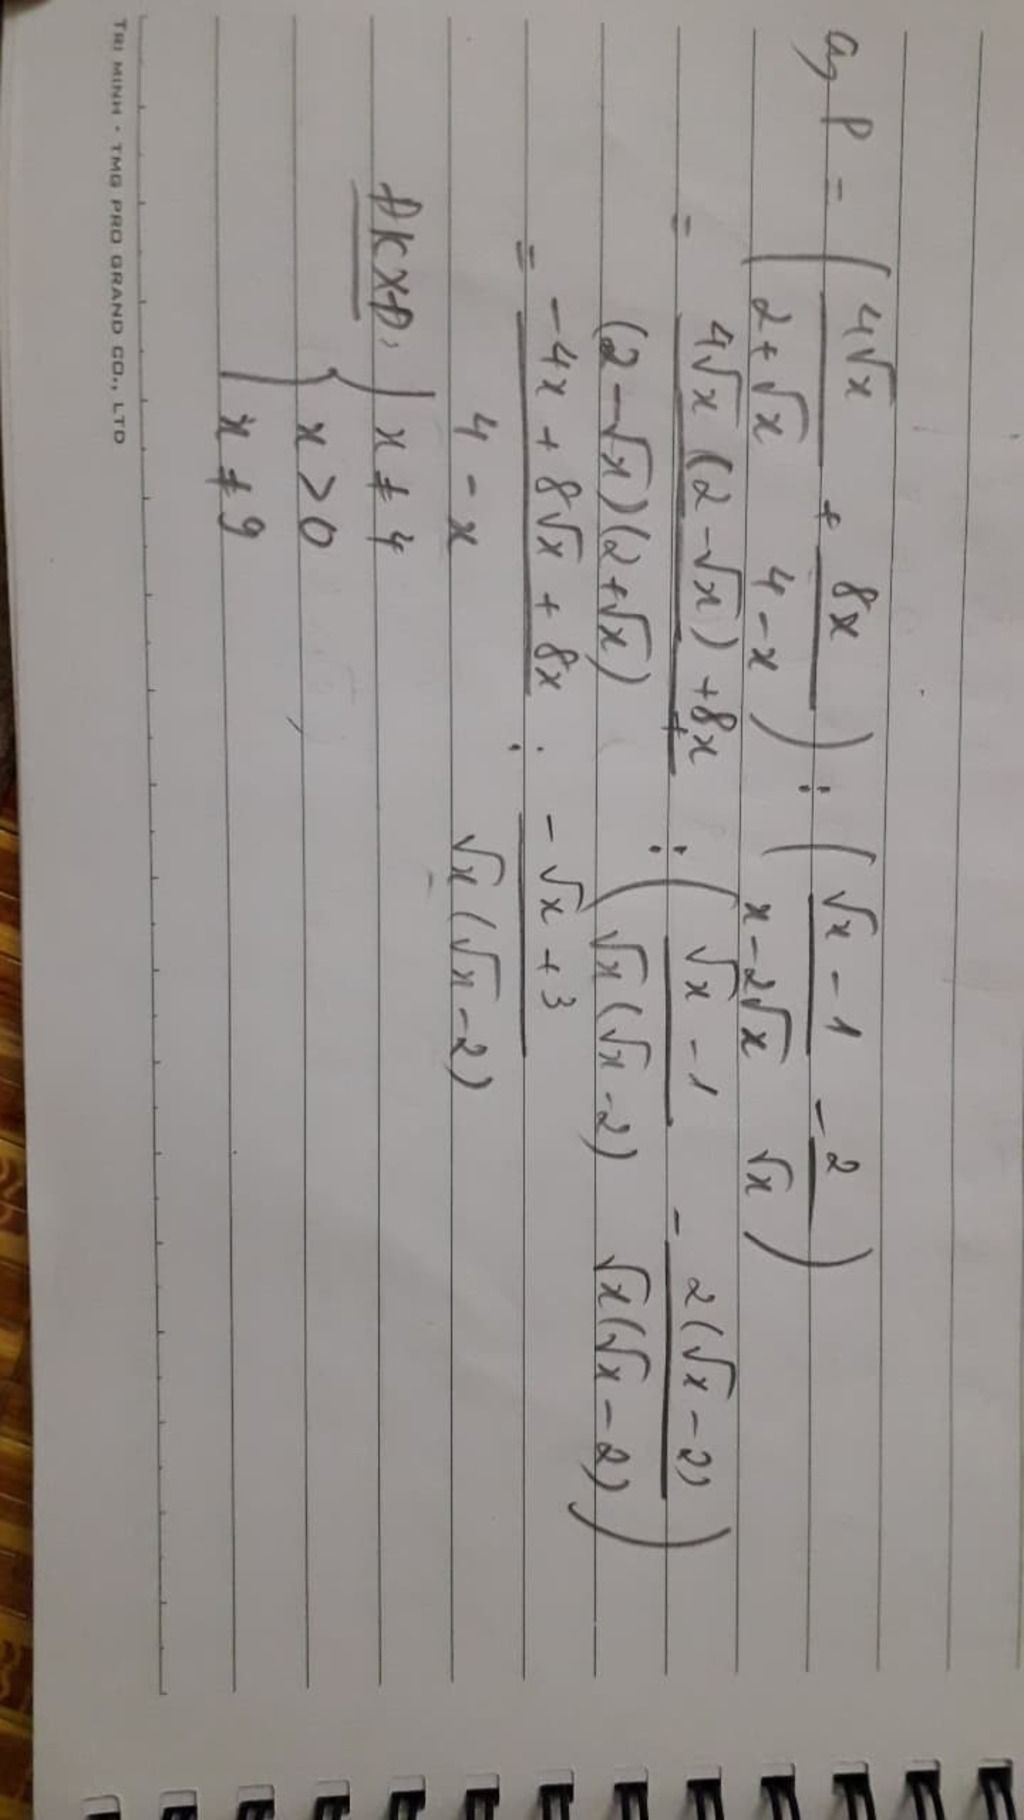 a, P = (4√x / 2+√x + 8x / 4-x) : (√x - 1 / x-2√x - 2 / √x)
= 4√x (2-√x) + 8x / (2-√x)(2+√x) : (√x - 1 / √x(√x-2) - 2(√x-2) / √x(√x-2))
= -4x + 8√x + 8x / 4 - x : -√x + 3 / √x(√x-2)
ĐKXĐ: { x ≠ 4
x > 0
x ≠ 9
TRI MINH - TMG PRO GRAND CO., LTD